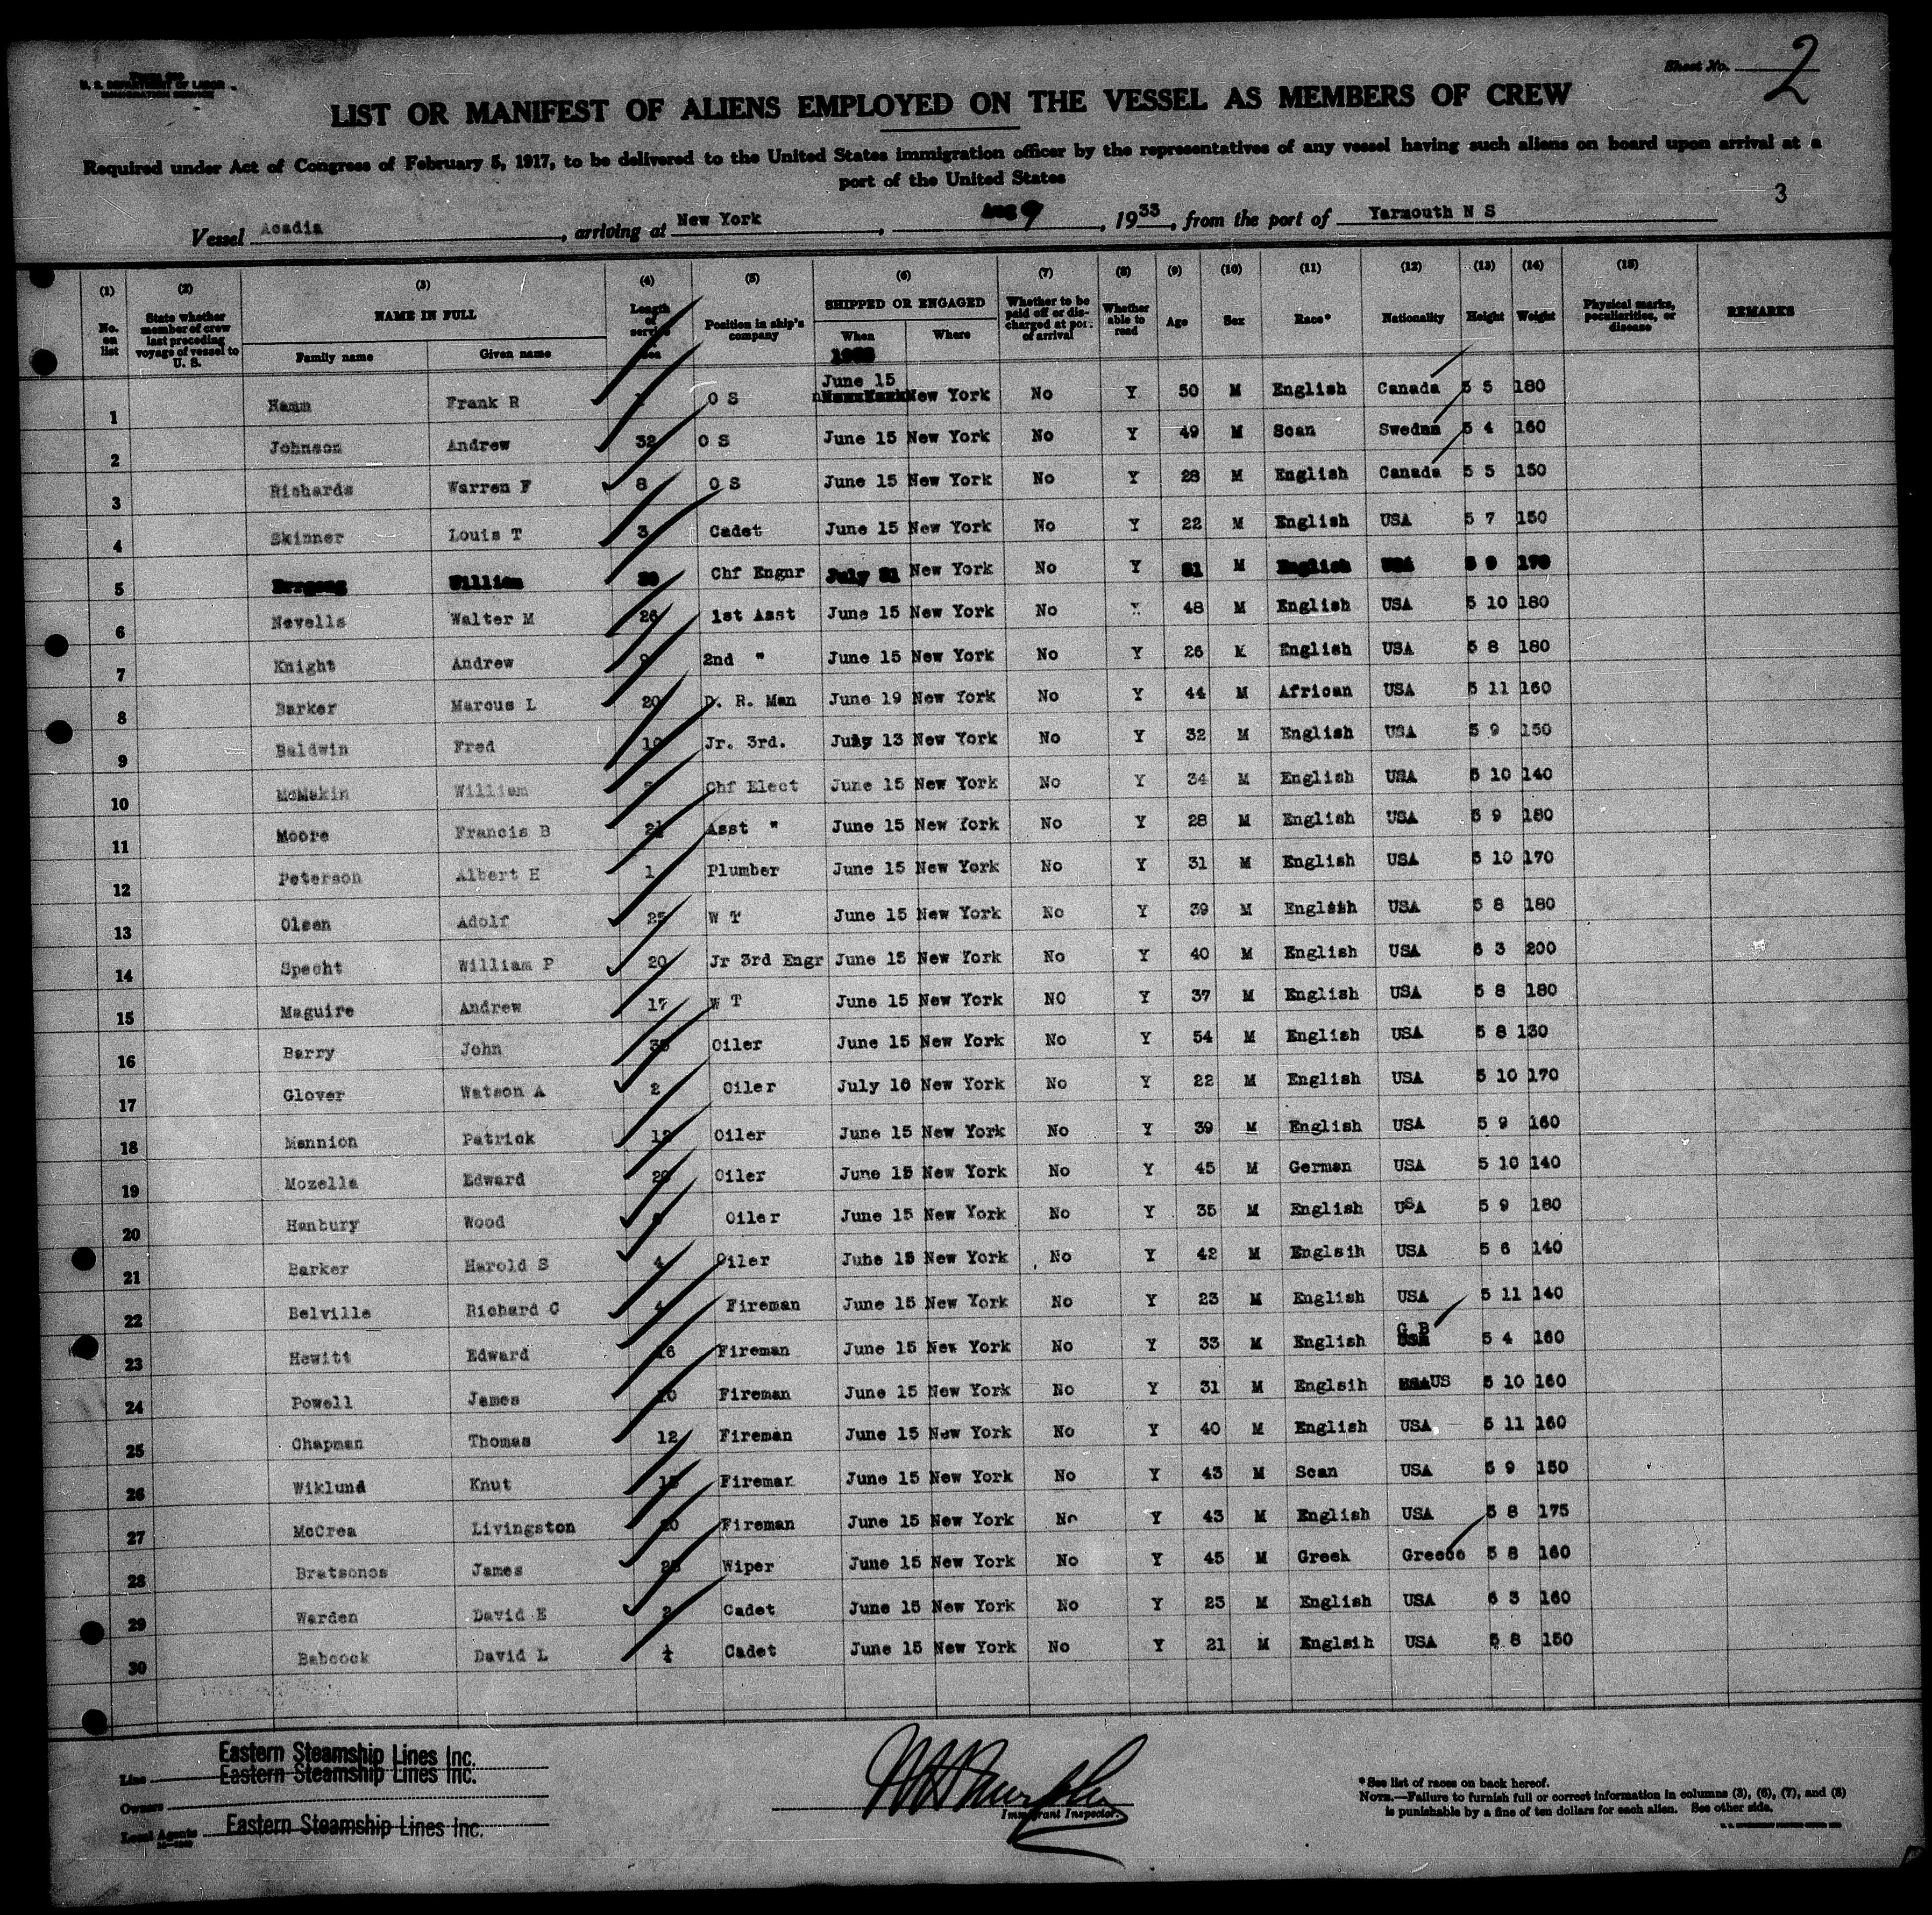 Sheet No. 2
U. S. DEPARTMENT OF LABOR
IMMIGRATION SERVICE
LIST OR MANIFEST OF ALIENS EMPLOYED ON THE VESSEL AS MEMBERS OF CREW
Required under Act of Congress of February 5, 1917, to be delivered to the United States immigration officer by the representatives of any vessel having such aliens on board upon arrival at a
port of the United States
3
Vessel Acadia, arriving at New York, Aug 9, 1933, from the port of Yarmouth N S
(1) (2) (3) (4) (5) (6) (7) (8) (9) (10) (11) (12) (13) (14) (15)
No. on list State whether member of crew last preceding voyage of vessel to U. S. NAME IN FULL Family name Given name Length of service sea Position in ship's company SHIPPED OR ENGAGED When Where Whether to be paid off or discharged at port of arrival Whether able to read Age Sex Race* Nationality Height Weight Physical marks, peculiarities, or disease REMARKS
1933
1 Hamm Frank R O S June 15 New York No Y 50 M English Canada 5 5 180
2 Johnson Andrew 32 O S June 15 New York No Y 49 M Scan Sweden 5 4 160
3 Richards Warren F 8 O S June 15 New York No Y 28 M English Canada 5 5 150
4 Skinner Louis T 3 Cadet June 15 New York No Y 22 M English USA 5 7 150
5 William Chf Engnr July New York No Y M English USA
6 Nevells Walter M 26 1st Asst June 15 New York No Y 48 M English USA 5 10 180
7 Knight Andrew 2nd " June 15 New York No Y 26 M English USA 5 8 180
8 Barker Marcus L 20 D. R. Man June 19 New York No Y 44 M African USA 5 11 160
9 Baldwin Fred 10 Jr. 3rd. July 13 New York No Y 32 M English USA 5 9 150
10 McMakin William Chf Elect June 15 New York No Y 34 M English USA 5 10 140
11 Moore Francis B Asst " June 15 New York No Y 28 M English USA 5 9 180
12 Peterson Albert H 1 Plumber June 15 New York No Y 31 M English USA 5 10 170
13 Olsen Adolf 25 W T June 15 New York No Y 39 M English USA 5 8 180
14 Specht William P 20 Jr 3rd Engr June 15 New York No Y 40 M English USA 6 3 200
15 Maguire Andrew 17 W T June 15 New York NO Y 37 M English USA 5 8 180
16 Barry John Oiler June 15 New York No Y 54 M English USA 5 8 130
17 Glover Watson A 2 Oiler July 10 New York No Y 22 M English USA 5 10 170
18 Mannion Patrick 12 Oiler June 15 New York No Y 39 M English USA 5 9 160
19 Mozella Edward Oiler June 15 New York No Y 45 M German USA 5 10 140
20 Hanbury Wood Oiler June 15 New York No Y 35 M English USA 5 9 180
21 Barker Harold S 4 Oiler June 15 New York No Y 42 M Englsih USA 5 6 140
22 Belville Richard C 4 Fireman June 15 New York No Y 23 M English USA 5 11 140
23 Hewitt Edward 16 Fireman June 15 New York No Y 33 M English G B 5 4 160
24 Powell James 10 Fireman June 15 New York No Y 31 M Englsih US 5 10 160
25 Chapman Thomas 12 Fireman June 15 New York No Y 40 M English USA 5 11 160
26 Wiklund Knut Fireman June 15 New York No Y 43 M Scan USA 5 9 150
27 McCrea Livingston 20 Fireman June 15 New York No Y 43 M English USA 5 8 175
28 Bratsonos James Wiper June 15 New York No Y 45 M Greek Greece 5 8 160
29 Warden David E 2 Cadet June 15 New York No Y 23 M English USA 6 3 160
30 Babcock David L Cadet June 15 New York No Y 21 M Englsih USA 5 8 150
Line Eastern Steamship Lines Inc.
Owners Eastern Steamship Lines Inc.
Local Agents Eastern Steamship Lines Inc.
Immigrant Inspector.
*See list of races on back hereof.
NOTE.—Failure to furnish full or correct information in columns (3), (6), (7), and (8)
is punishable by a fine of ten dollars for each alien. See other side.